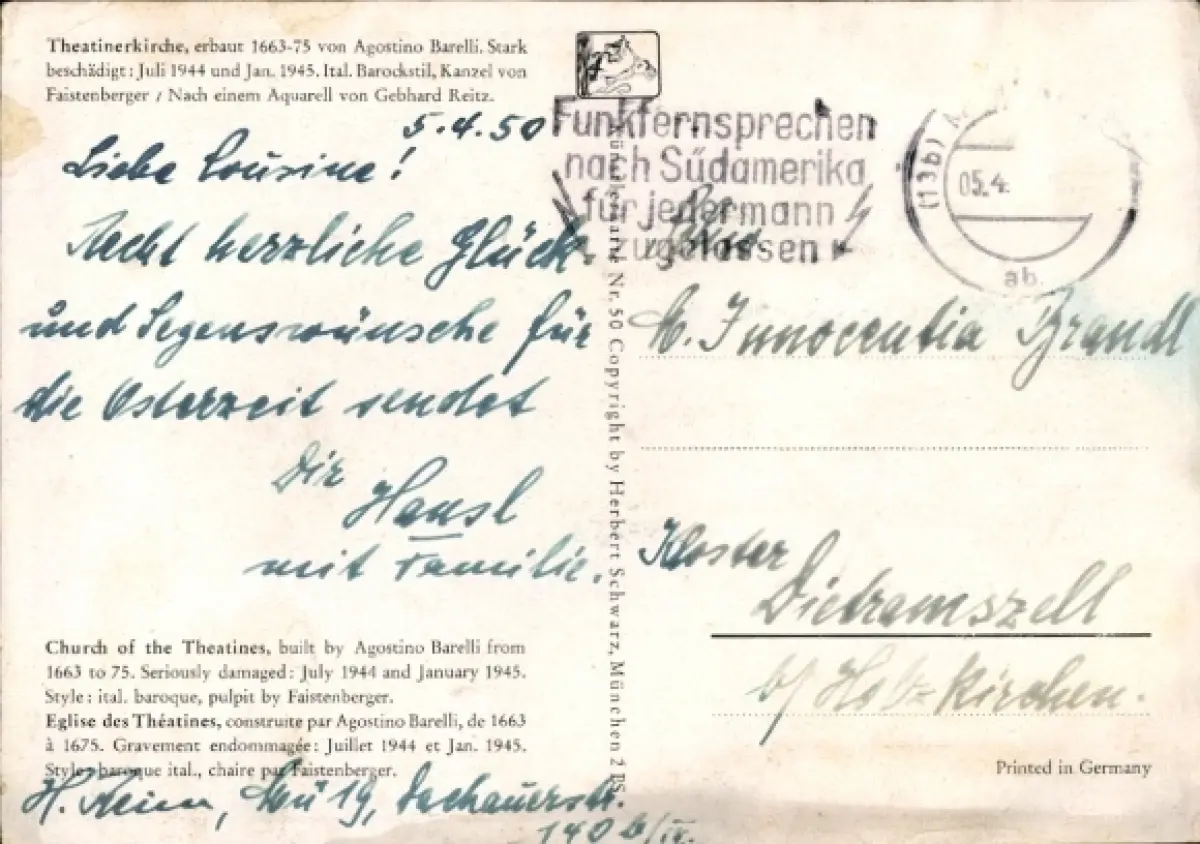 Theatinerkirche, erbaut 1663-75 von Agostino Barelli. Stark
beschädigt: Juli 1944 und Jan. 1945. Ital. Barockstil, Kanzel von
Faistenberger / Nach einem Aquarell von Gebhard Reitz.
5.4.50
Liebe Cousine!
Recht herzliche Glück-
und Segenswünsche für
die Osterzeit sendet
Dir
Hansl
mit Familie.
Church of the Theatines, built by Agostino Barelli from
1663 to 75. Seriously damaged: July 1944 and January 1945.
Style: ital. baroque, pulpit by Faistenberger.
Eglise des Théatines, construite par Agostino Barelli, de 1663
à 1675. Gravement endommagée: Juillet 1944 et Jan. 1945.
Style baroque ital., chaire par Faistenberger.
H. Mü 19, Dachauerstr.
140 b/IV.
Nr. 50 Copyright by Herbert Schwarz, München 2 BS
Funkfernsprechen
nach Südamerika
für jedermann
zugelassen
(13b)
05.4.
ab
M. Innocentia Brandl
Kloster
Dietramszell
b/ Holz=kirchen.
Printed in Germany